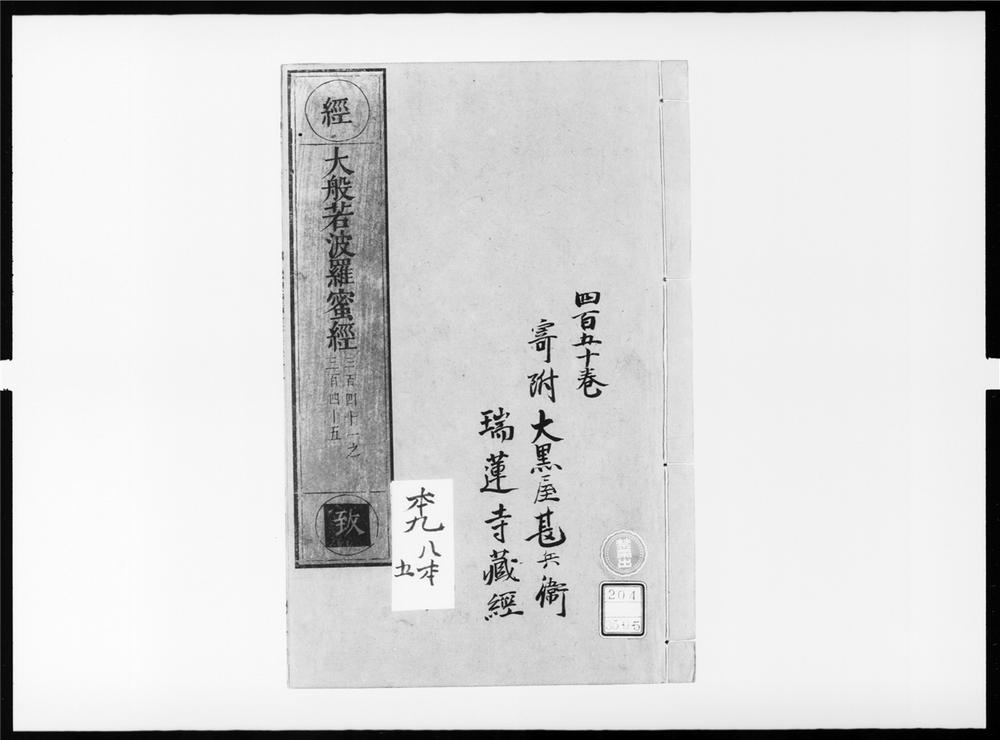 四百五十巻
寄附大黒屋甚兵衞
瑞蓮寺藏經
經
大般若波羅蜜經
三百四十一之
三百四十五
致
本九
八本
五
204